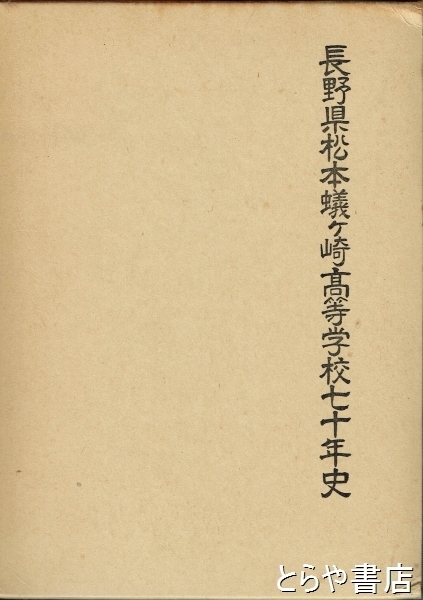 長野県松本蟻ヶ崎髙等学校七十年史
とらや書店